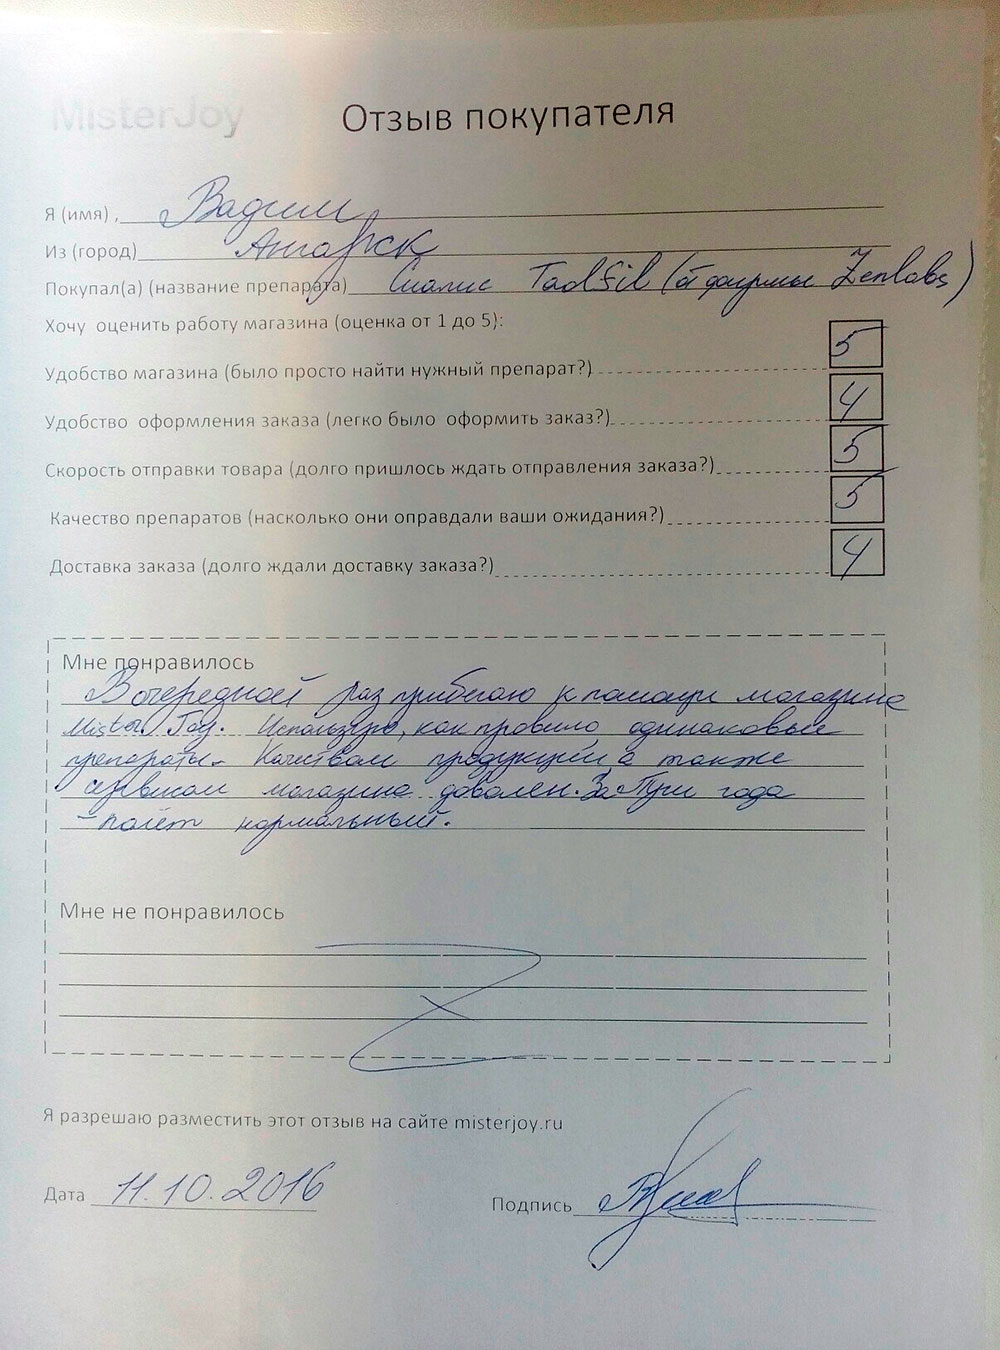 MisterJoy
Отзыв покупателя
Я (имя) , Вадим
Из (город) Ангарск
Покупал(а) (название препарата) Сиалис Tadfil (от фирмы Zenlabs)
Хочу оценить работу магазина (оценка от 1 до 5):
Удобство магазина (было просто найти нужный препарат?) 5
Удобство оформления заказа (легко было оформить заказ?) 4
Скорость отправки товара (долго пришлось ждать отправления заказа?) 5
Качество препаратов (насколько они оправдали ваши ожидания?) 5
Доставка заказа (долго ждали доставку заказа?) 4
Мне понравилось
В очередной раз прибегаю к помощи магазина
Mister Joy. Использую, как правило одинаковые
препараты. Качеством продукции а также
сервисом магазина доволен. За три года
- полёт нормальный.
Мне не понравилось
Я разрешаю разместить этот отзыв на сайте misterjoy.ru
Дата 11.10.2016
Подпись